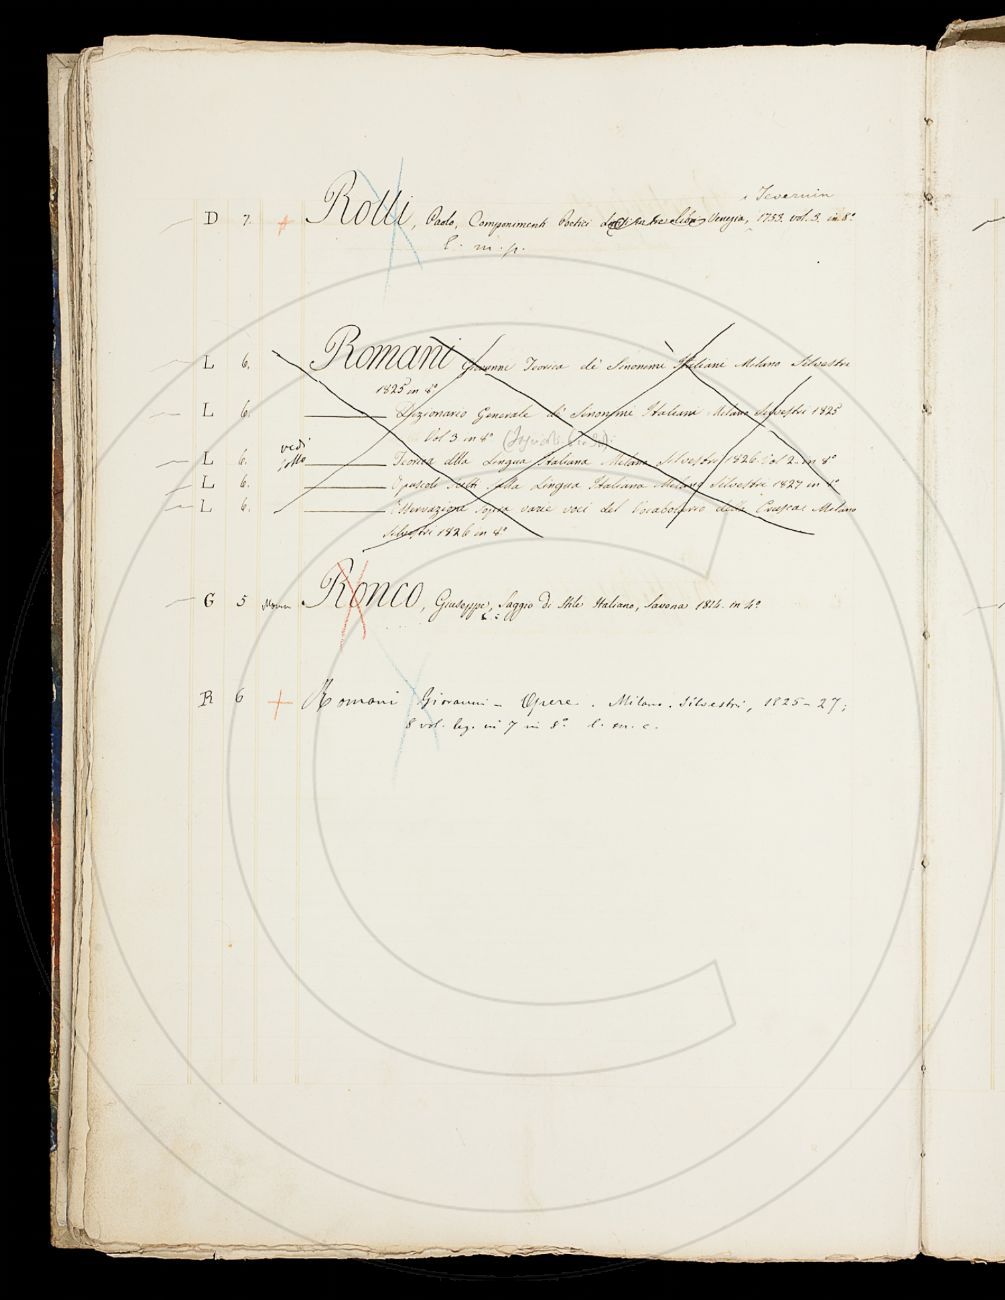 Tevernin
D 7. + Rolli, Paolo, Componimenti Poetici Venezia, 1753. vol. 3. in 8°
l. m. p.
L 6. Romani Giovanni Teorica de' Sinonimi Italiani Milano Silvestri
1825 in 8°
L 6. Dizionario Generale de' Sinonimi Italiani Milano Silvestri 1825
Vol 3 in 8°
vedi
L 6. sotto Teorica della Lingua Italiana Milano Silvestri 1826 Vol 2. in 8°
L 6. Opuscoli Scelti sulla Lingua Italiana Milano Silvestri 1827 in 8°
L 6. Osservazioni sopra varie voci del Vocabolario della Crusca Milano
Silvestri 1826 in 8°
G 5 Ronco, Giuseppe, Saggio di Stile Italiano, Savona 1814. in 4°
R 6 + Romani Giovanni - Opere. Milano. Silvestri, 1825-27;
8 vol. leg. in 7 in 8° l. m. c.